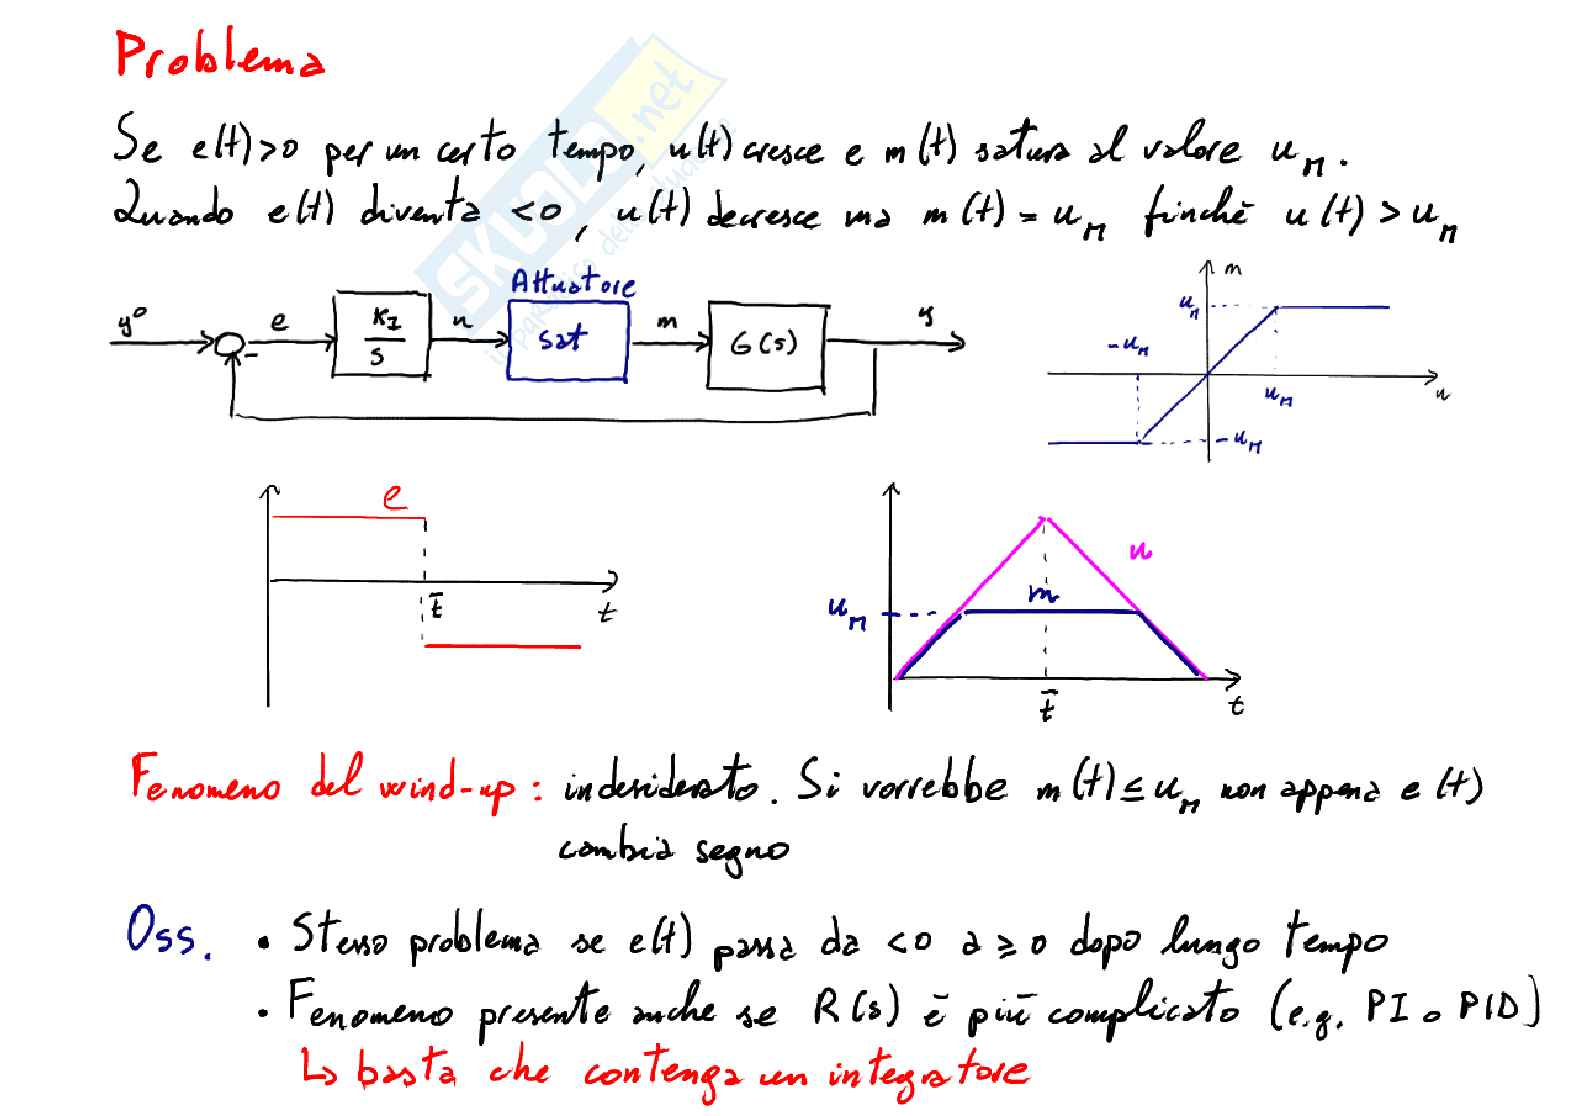 Problema
Se e(t)>0 per un certo tempo, u(t) cresce e m(t) satura al valore u_M.
Quando e(t) diventa <0, u(t) decresce ma m(t) = u_M finchè u(t) > u_M
Attuatore
y° e K_I/s u sat m G(s) y
-
m
u_M
-u_M
u_M
u
-u_M
e
t̄
t
u
m
u_M
t̄
t
Fenomeno del wind-up: indesiderato. Si vorrebbe m(t) ≤ u_M non appena e(t)
cambia segno
Oss. • Stesso problema se e(t) passa da <0 a ≥0 dopo lungo tempo
• Fenomeno presente anche se R(s) è più complicato (e.g. PI o PID)
↳ basta che contenga un integratore
SKUOLA.net